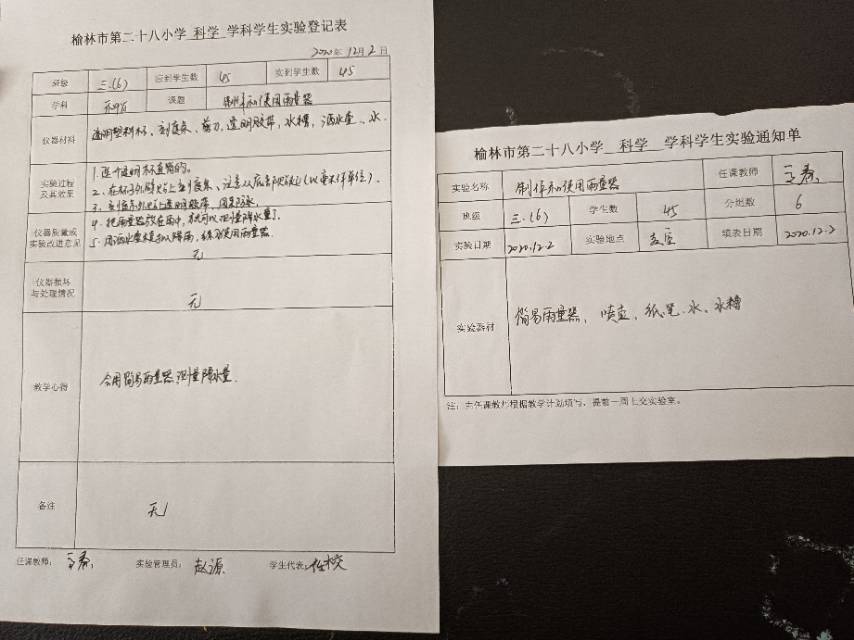 榆林市第二十八小学 科学 学科学生实验登记表
2020年12月2日
班级 三.(6) 应到学生数 45 实到学生数 45
学科 科学 课题 制作和使用雨量器
仪器材料 透明塑料杯、刻度条、剪刀、透明胶带、水槽、洒水壶、水.
实验过程及其效果
1.选个透明杯直筒的。
2.在杯子外壁贴上刻度条、注意从底部开始(以毫米作单位).
3.刻度条外贴上透明胶带,用是防水.
4.把雨量器放在雨中,就可以测量降水量了.
仪器质量或实验改进意见
5.用洒水壶模拟降雨,练习使用雨量器.
无
仪器损坏与处理情况
无
教学心得 会用简易雨量器测量降水量.
备注 无
任课教师: 实验管理员: 赵源 学生代表:
榆林市第二十八小学 科学 学科学生实验通知单
实验名称 制作和使用雨量器 任课教师
班级 三.(6) 学生数 45 分组数 6
实验日期 2020.12.2 实验地点 填表日期 2020.12.2
实验器材 简易雨量器、喷壶、纸笔、水、水槽
注:由任课教师根据教学计划填写,提前一周上交实验室。